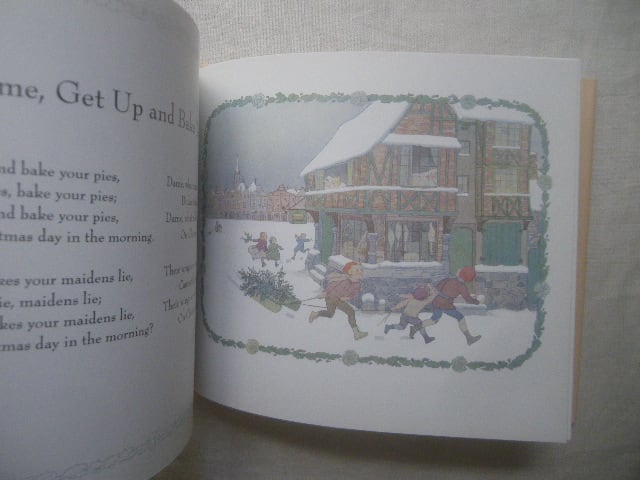 me, Get Up and Bake
nd bake your pies,
s, bake your pies;
nd bake your pies,
tmas day in the morning.
kes your maidens lie,
lie, maidens lie;
kes your maidens lie,
tmas day in the morning?
Dame, wha
Dame, w